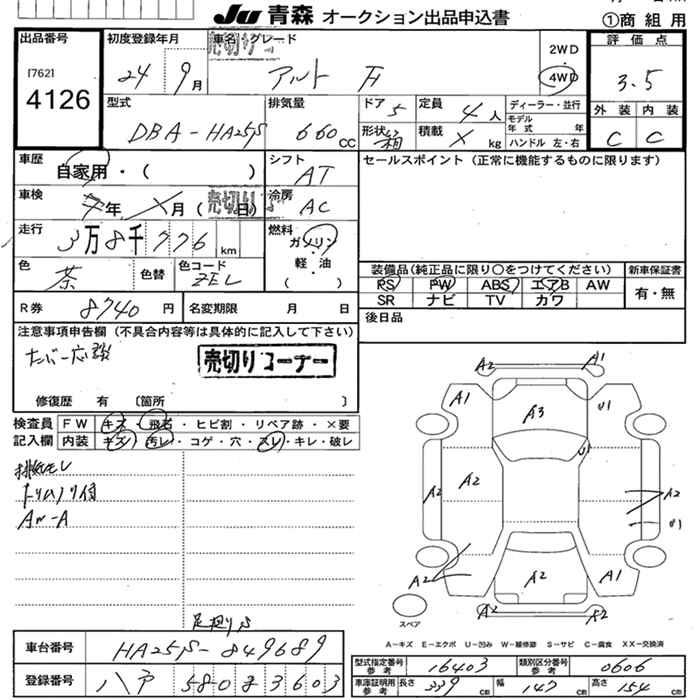 Ju 青森 オークション出品申込書
①商組用
出品番号
[762]
4126
初度登録年月
24 9月
車名・グレード
売切り
アルト F
2WD
4WD
評価点
3.5
外装 内装
C C
型式
DBA-HA25S
排気量
660 CC
ドア 5
定員 4人
形状 箱
積載 X kg
ディーラー・並行
モデル年式 年
ハンドル 左・右
車歴
自家用・( )
シフト
AT
車検
年 月 ( 日)
売切り
冷房
AC
走行
3万8千776 km
燃料
ガソリン
軽・油
( )
色
茶
色替
色コード
ZEL
R券 8740 円
名変期限 月 日
セールスポイント (正常に機能するものに限ります)
装備品(純正品に限り〇をつけてください)
新車保証書
PS PW ABS エアB AW
SR ナビ TV カワ
有・無
後日品
注意事項申告欄 (不具合内容等は具体的に記入して下さい)
売切りコーナー
修復歴 有 〔箇所 〕
検査員記入欄
FW キズ・飛石・ヒビ割・リペア跡・×要
内装 キズ・汚レ・コゲ・穴・スレ・キレ・破レ
A2 A1
A1 A3 U1
U1
A2 A2 A2
U1
A2 A2 A1
A2 A2
スペア
A-キズ E-エクボ U-凹み W-補修跡 S-サビ C-腐食 XX-交換済
車台番号 HA25S-849689
登録番号 八戸 580 3603
型式指定番号 参考 16403
類別区分番号 参考 0606
車庫証明用 参考 長さ 339 CM 幅 147 CM 高さ 154 CM